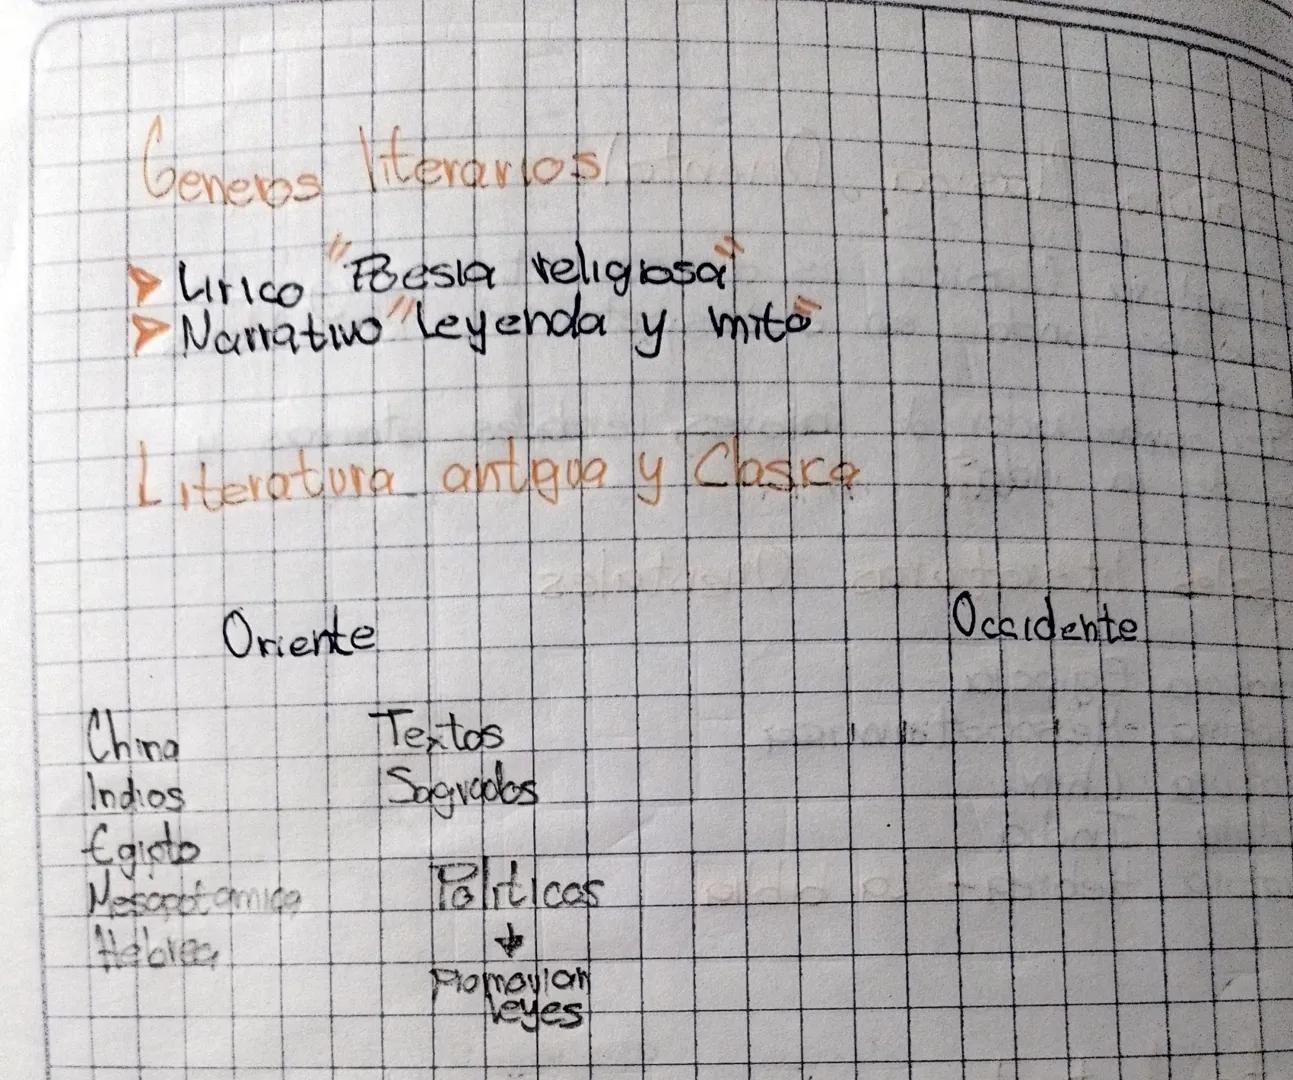 Generos literarios
➤ Lirico "Poesia religiosa"
➤ Narrativo "leyenda y mito"
Literatura antigua y Clasica
Oriente
Occidente
China
Indios
Egipto
Mesopotamica
Hebrea
Textos
Sagrados
Politicos
↓
Promovian
leyes